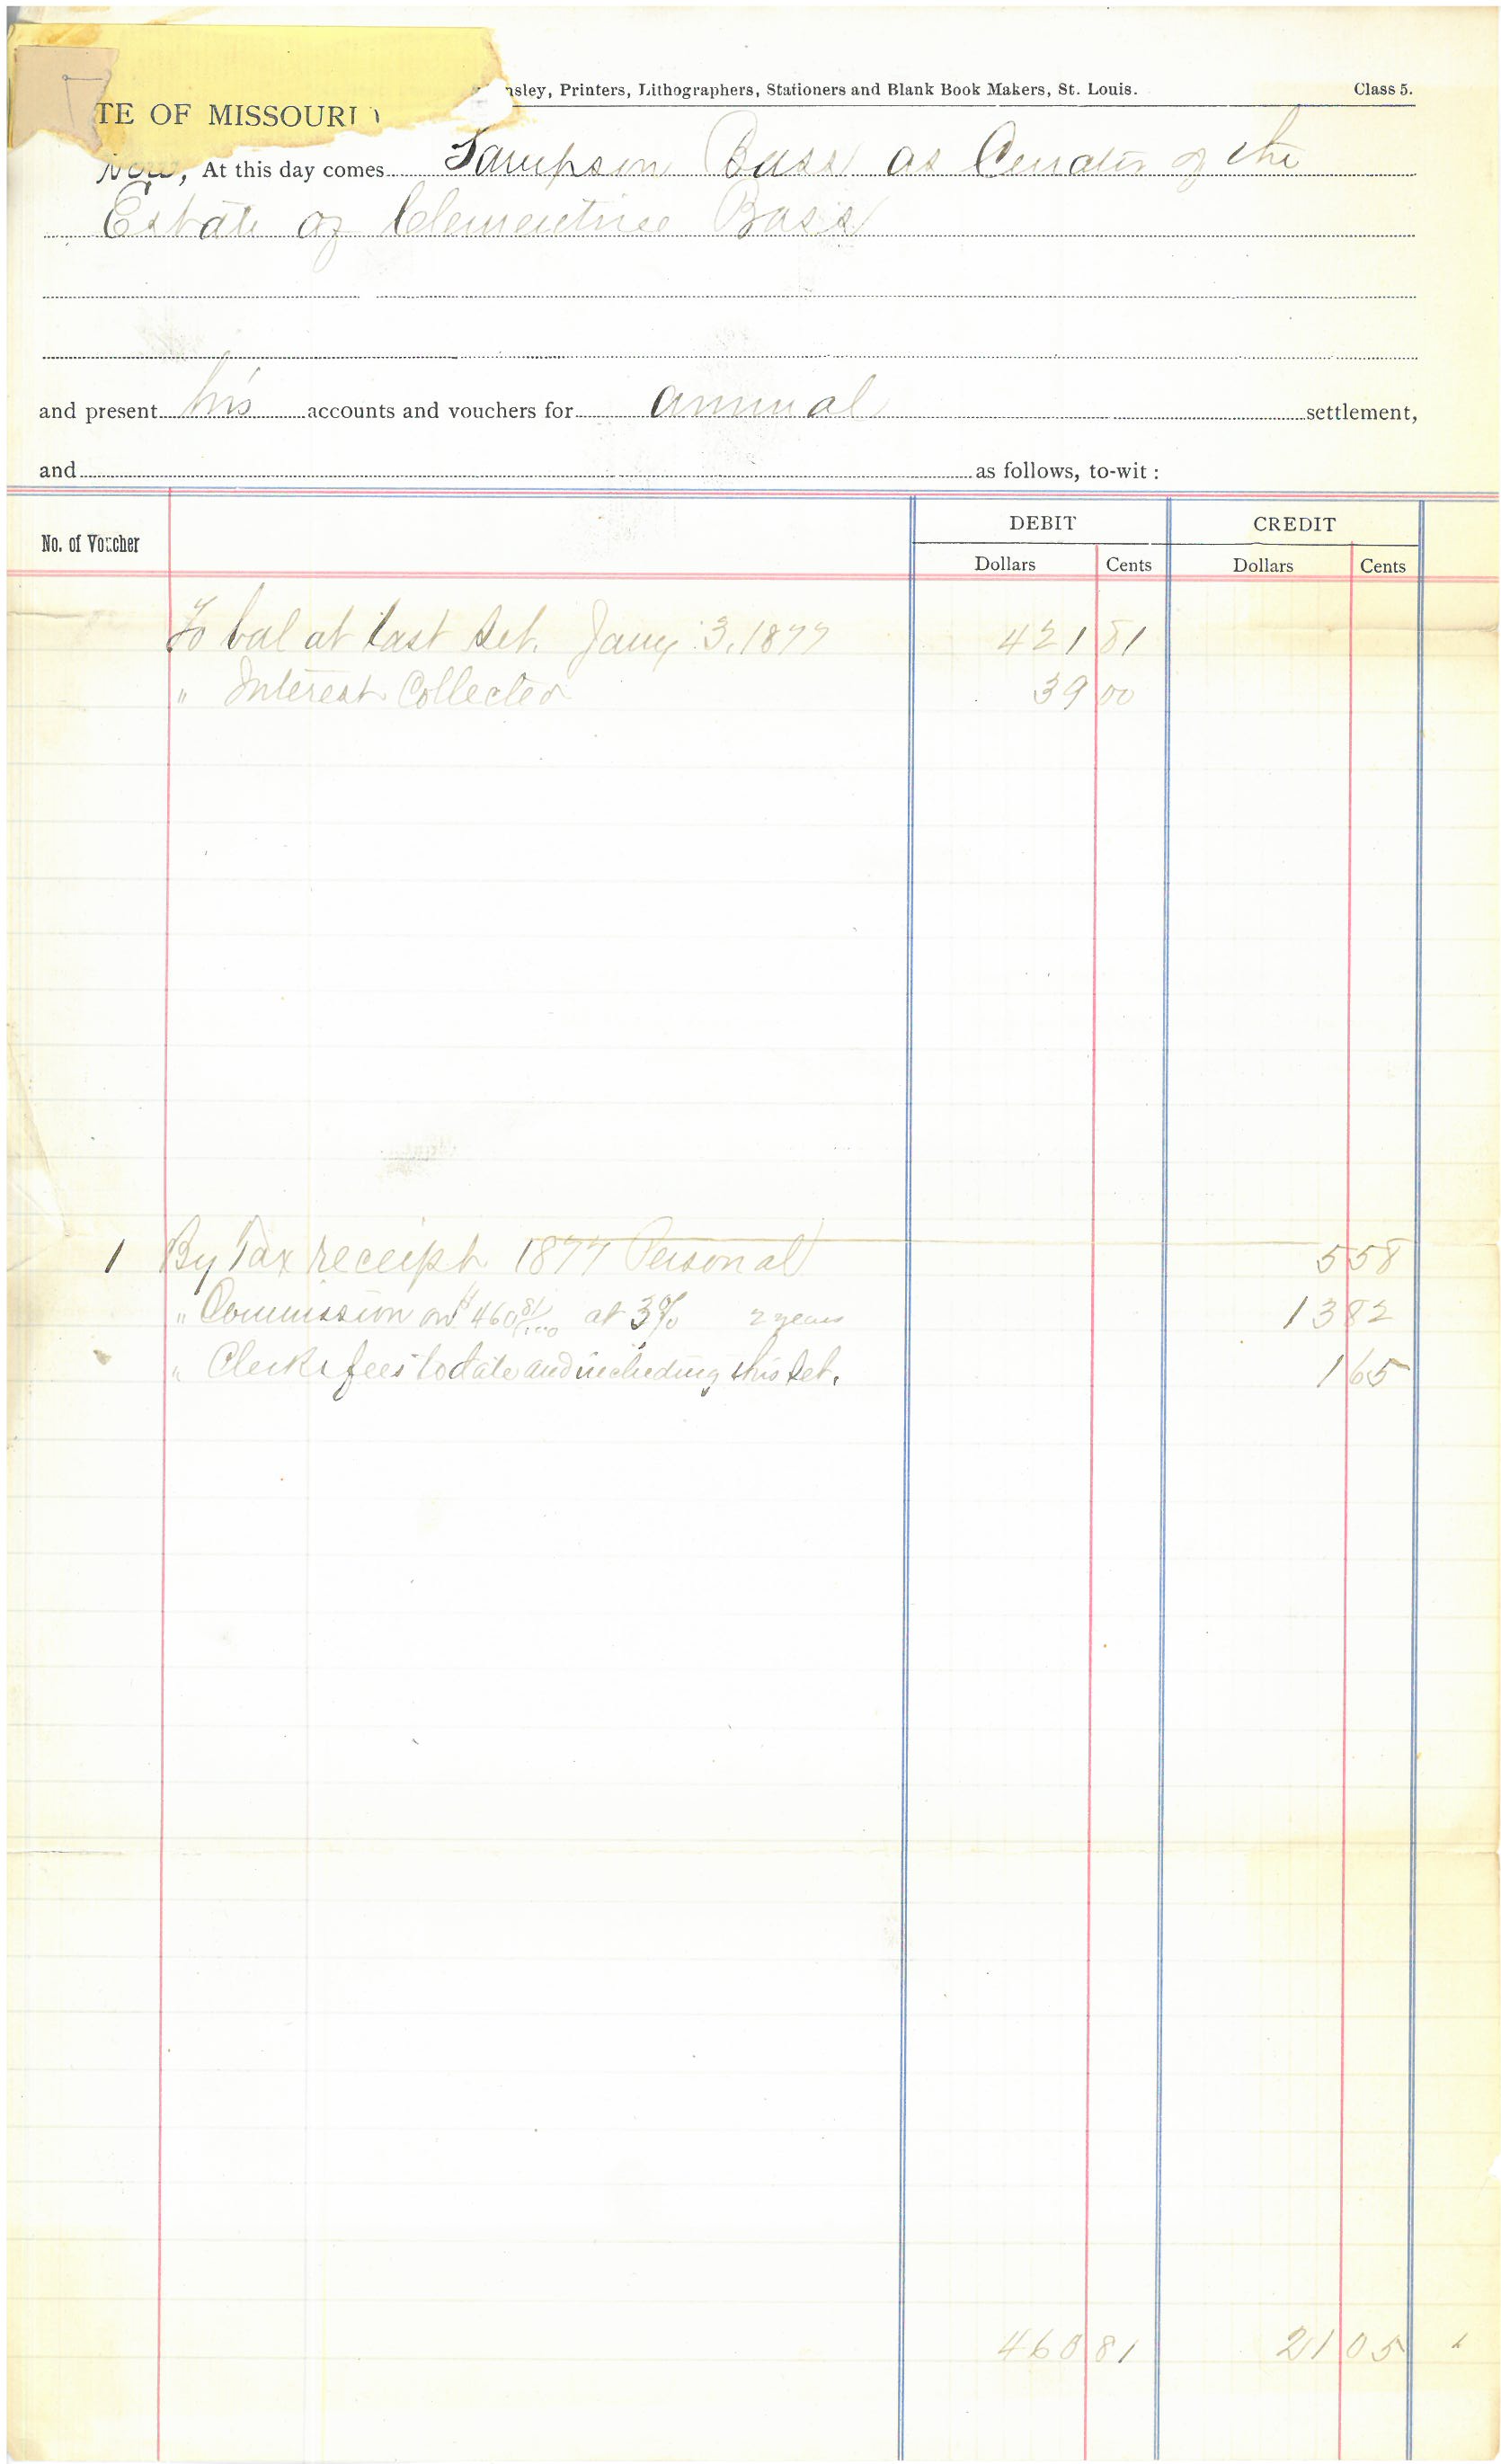 nsley, Printers, Lithographers, Stationers and Blank Book Makers, St. Louis. Class 5.
TE OF MISSOURI
Now, At this day comes Sampson Bass as Curator of the
Estate of Clementine Bass
and present his accounts and vouchers for annual settlement,
and as follows, to-wit :
No. of Voucher DEBIT CREDIT
Dollars Cents Dollars Cents
To bal at last Set. Jany 3, 1877 421 81
" Interest Collected 39 00
1 By Tax receipt 1877 Personal 5 58
" Commission on $460 81/100 at 3% 2 years 13 82
" Clerks fees to date and including this Set. 1 65
460 81 21 05